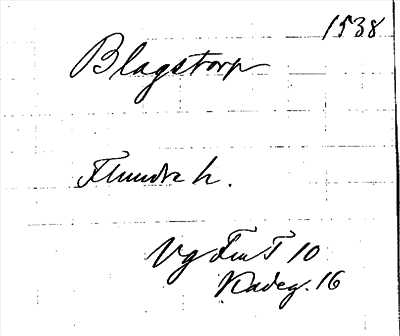 1538
Blagstorp
Flundre h.
Vg FmT 10
Kadeg. 16